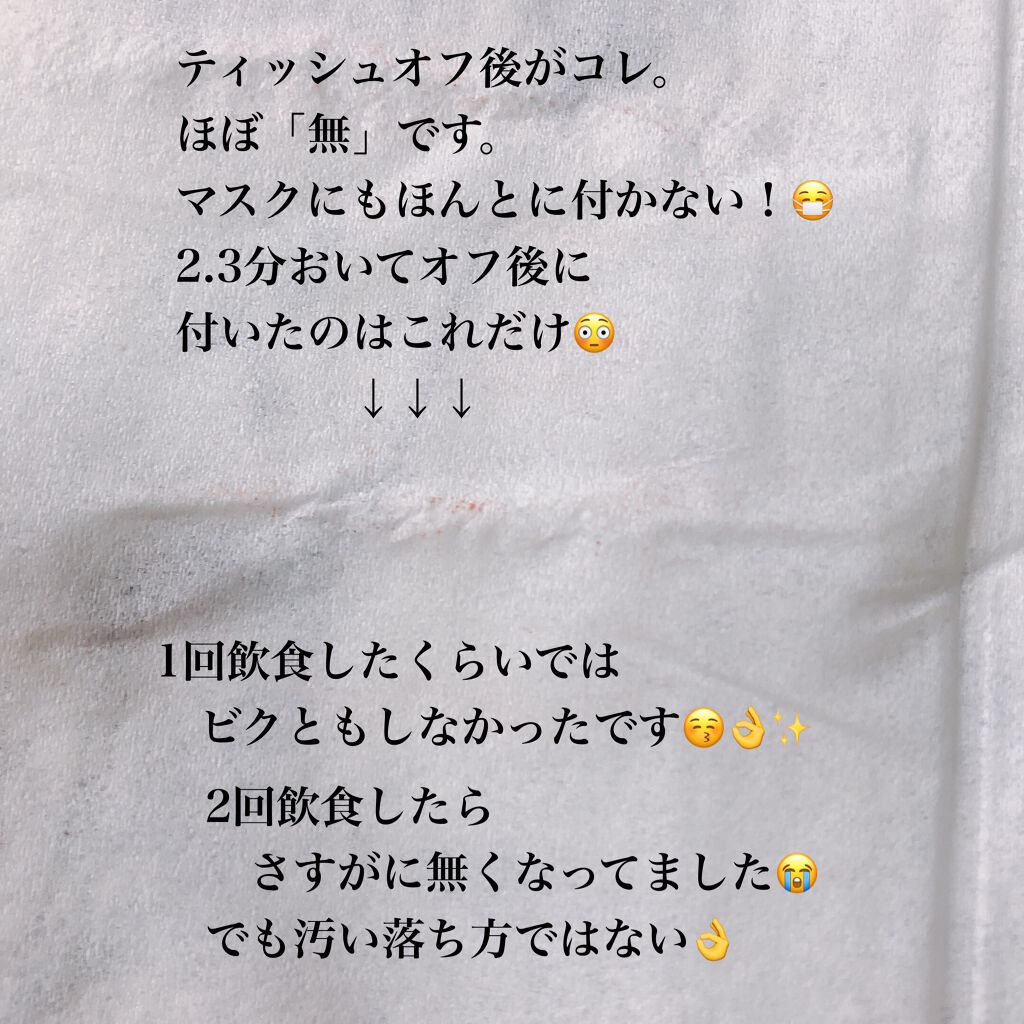 ティッシュオフ後がコレ。
ほぼ「無」です。
マスクにもほんとに付かない！😷
2.3分おいてオフ後に
付いたのはこれだけ😳
↓↓↓
1回飲食したくらいでは
ビクともしなかったです😚👌✨
2回飲食したら
さすがに無くなってました😭
でも汚い落ち方ではない👌